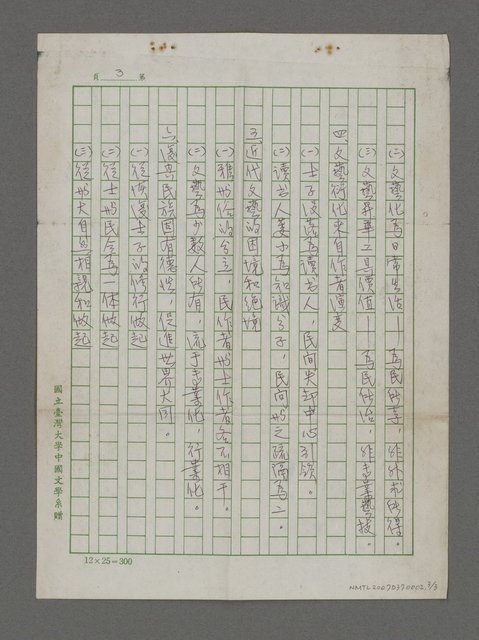 第 3 頁
(二)文藝化為日常生活——為民所享,非外求所得。
(三)文藝昇華工具價值——為民所治,非專業藝技。
四 文藝衍化來自作者演變
(一)士子沒落為讀書人,民間失卻中心引領。
(二)讀書人萎少為知識分子,民間與之疏隔為二。
五 近代文藝的困境和絕境
(一)雅與俗的分立,民作者與士作者各不相干。
(二)文藝為少數人所有,流于專業化,行業化。
六、復興民族固有德性,促進世界大同。
(一)從恢復士子的修行做起
(二)從士與民合為一体做起
(三)從與大自然相親和做起
國立臺灣大學中國文學系贈
12×25=300
NMTL20070370002, 3/3